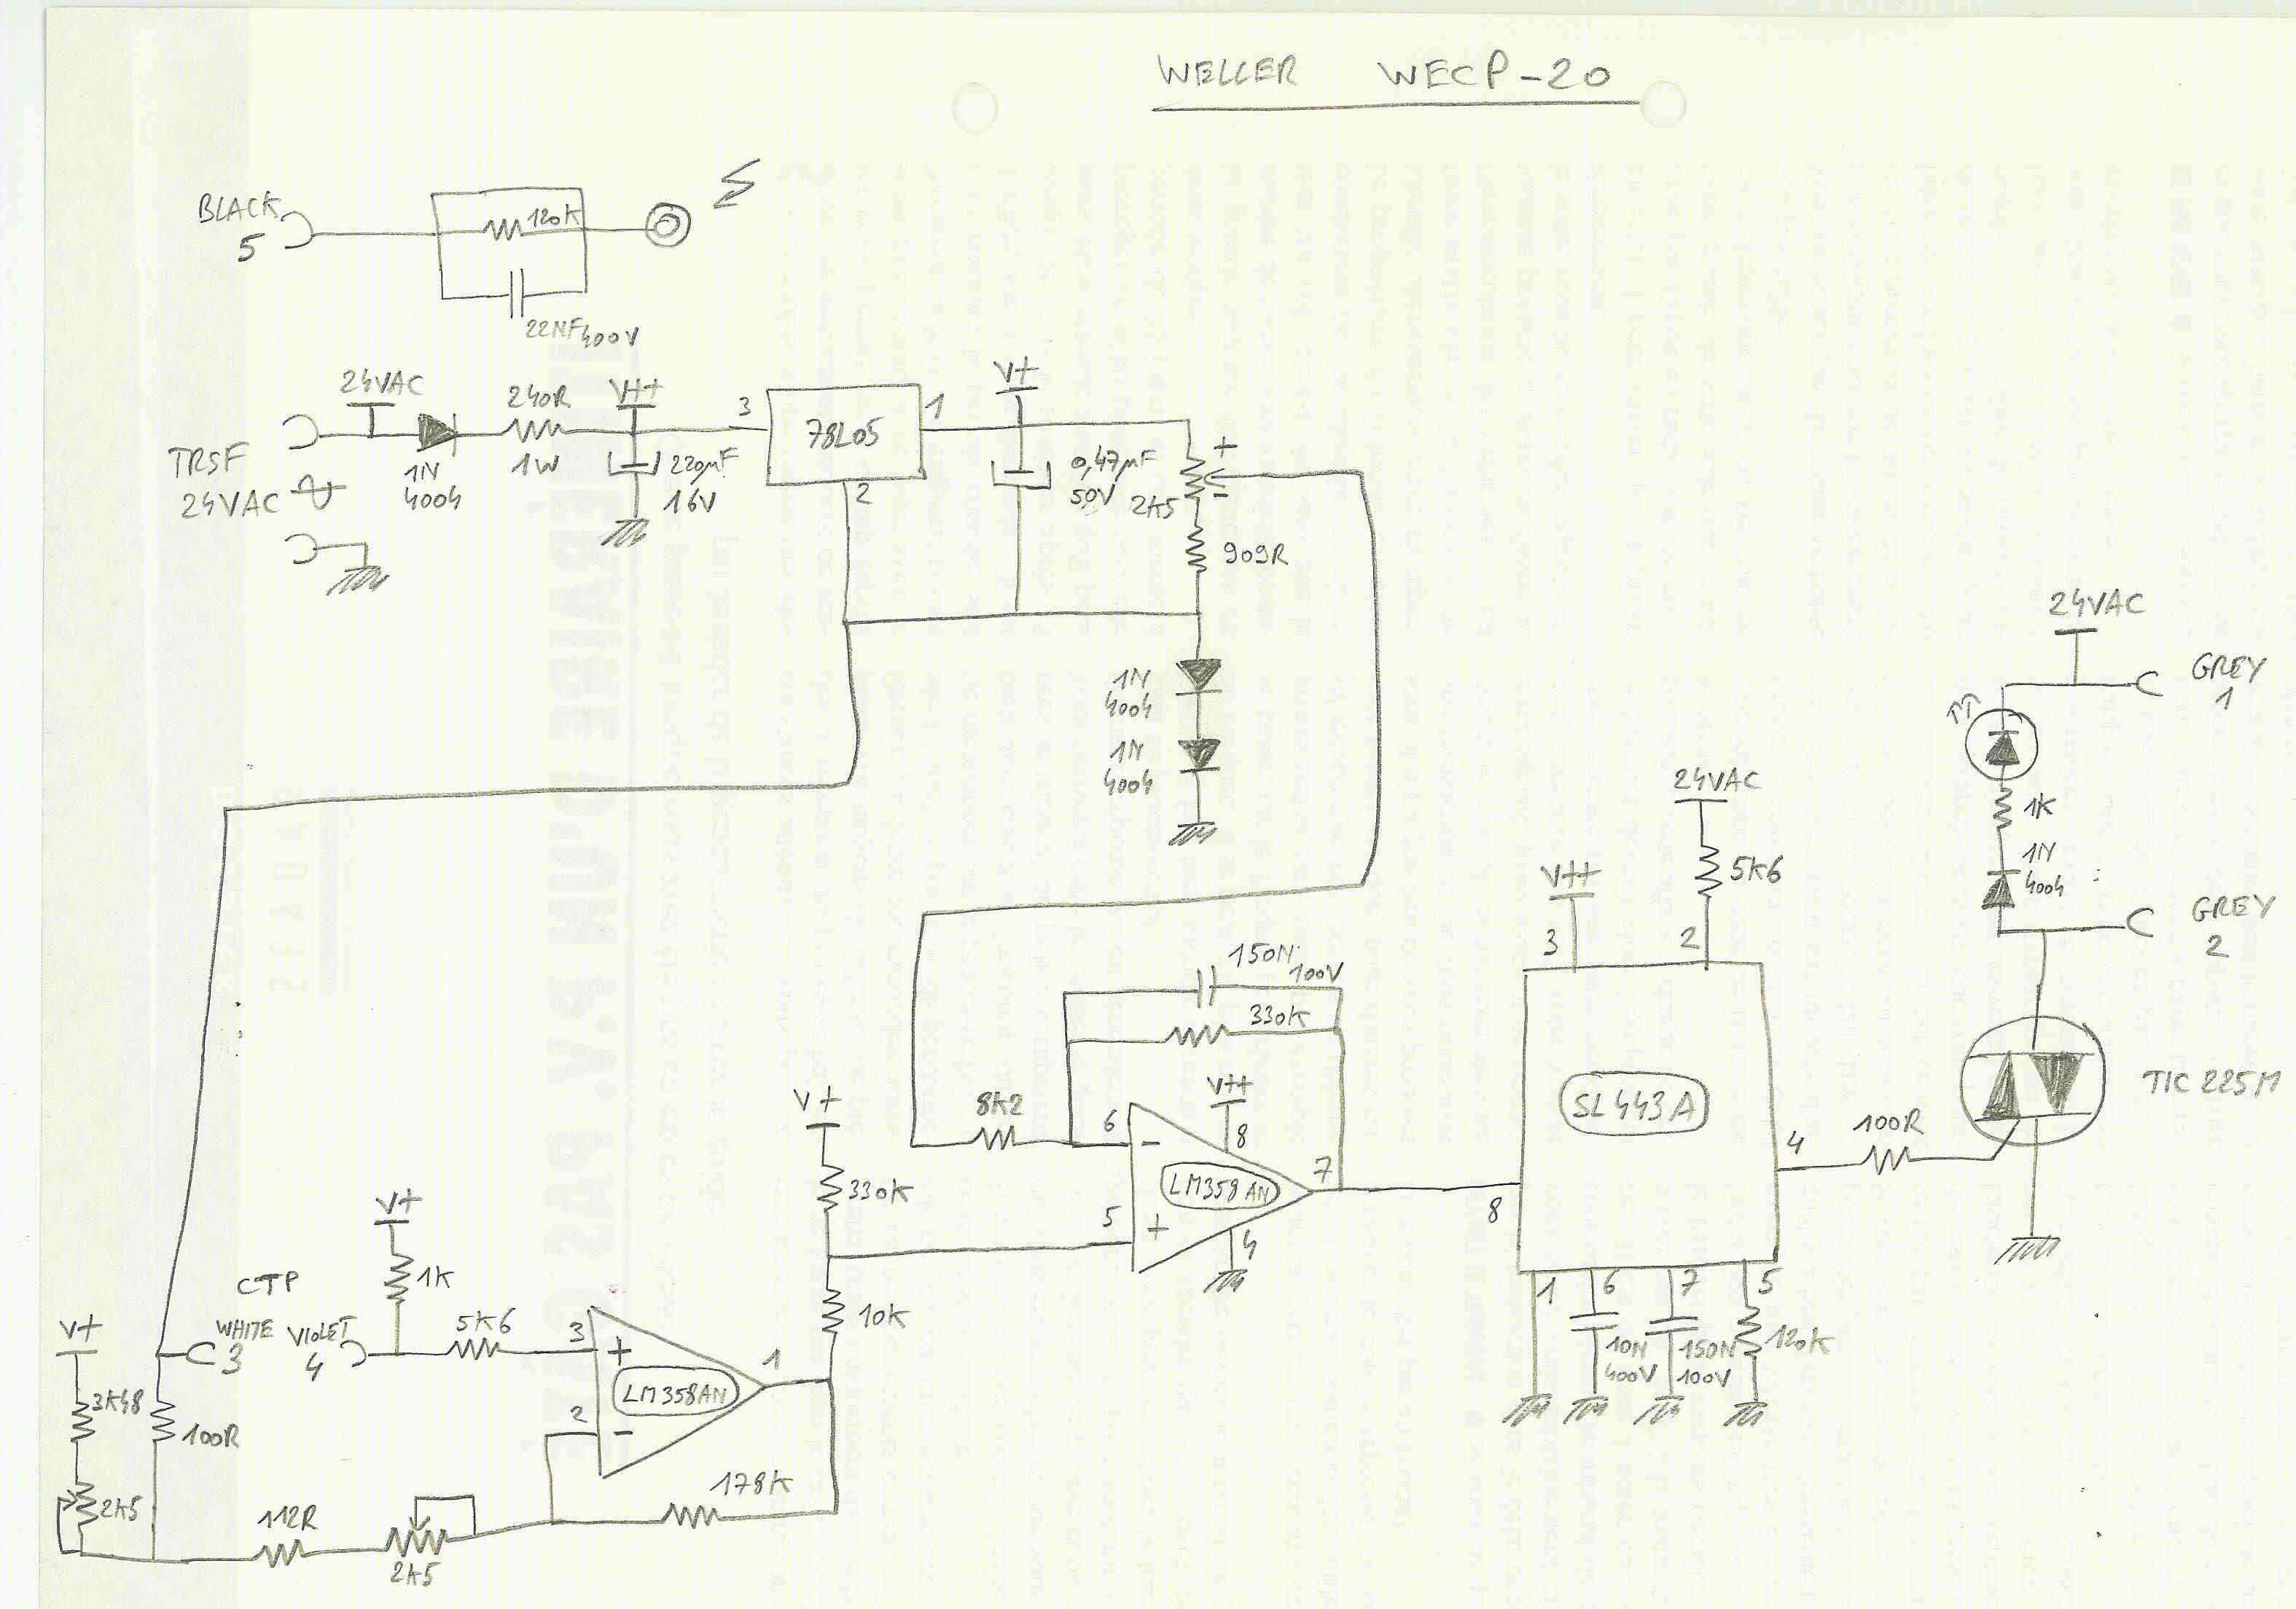 WELLER WECP-20
BLACK
5
120K
22NF 400V
24VAC
TRSF
24VAC
1N
4004
240R
1W
V++
220µF
16V
3
78L05
1
2
V+
0,47µF
50V
+
-
2K5
909R
1N
4004
1N
4004
24VAC
GREY
1
1K
1N
4004
GREY
2
TIC 225M
24VAC
5K6
V++
3
2
SL443A
4
100R
8
1
6
7
5
10N
400V
150N
100V
120K
150N
100V
330K
8K2
6
-
V++
8
LM358AN
7
5
+
4
V+
330K
10K
V+
1K
CTP
WHITE
3
VIOLET
4
5K6
3
+
LM358AN
1
2
-
178K
V+
3K48
100R
2K5
112R
2K5